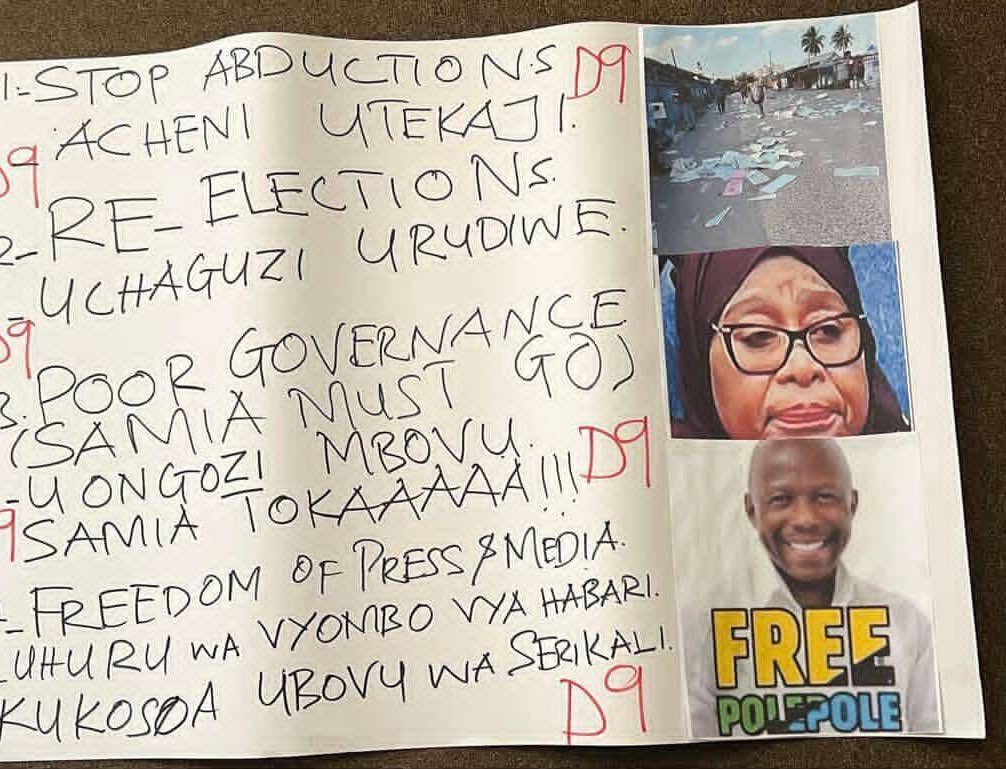 1-STOP ABDUCTIONS D9
ACHENI UTEKAJI.
D9
2-RE-ELECTIONS.
-UCHAGUZI URUDIWE.
D9
3.POOR GOVERNANCE
(SAMIA MUST GO)
-UONGOZI MBOVU. D9
SAMIA TOKAAAAAA!!!
-FREEDOM OF PRESS & MEDIA.
UHURU WA VYOMBO VYA HABARI.
KUKOSOA UBOVU WA SERIKALI.
D9
FREE
POLEPOLE